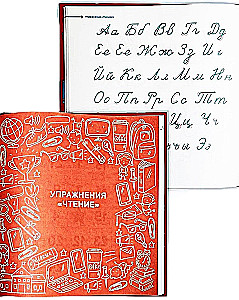 Аа Бб Вв Гг Дд
Ее Ёё Жж Зз Ии
Йй Кк Лл Мм Нн
Оо Пп Рр Сс Тт
Цц Чч
ъ ы Ээ
УПРАЖНЕНИЯ
«ЧТЕНИЕ»